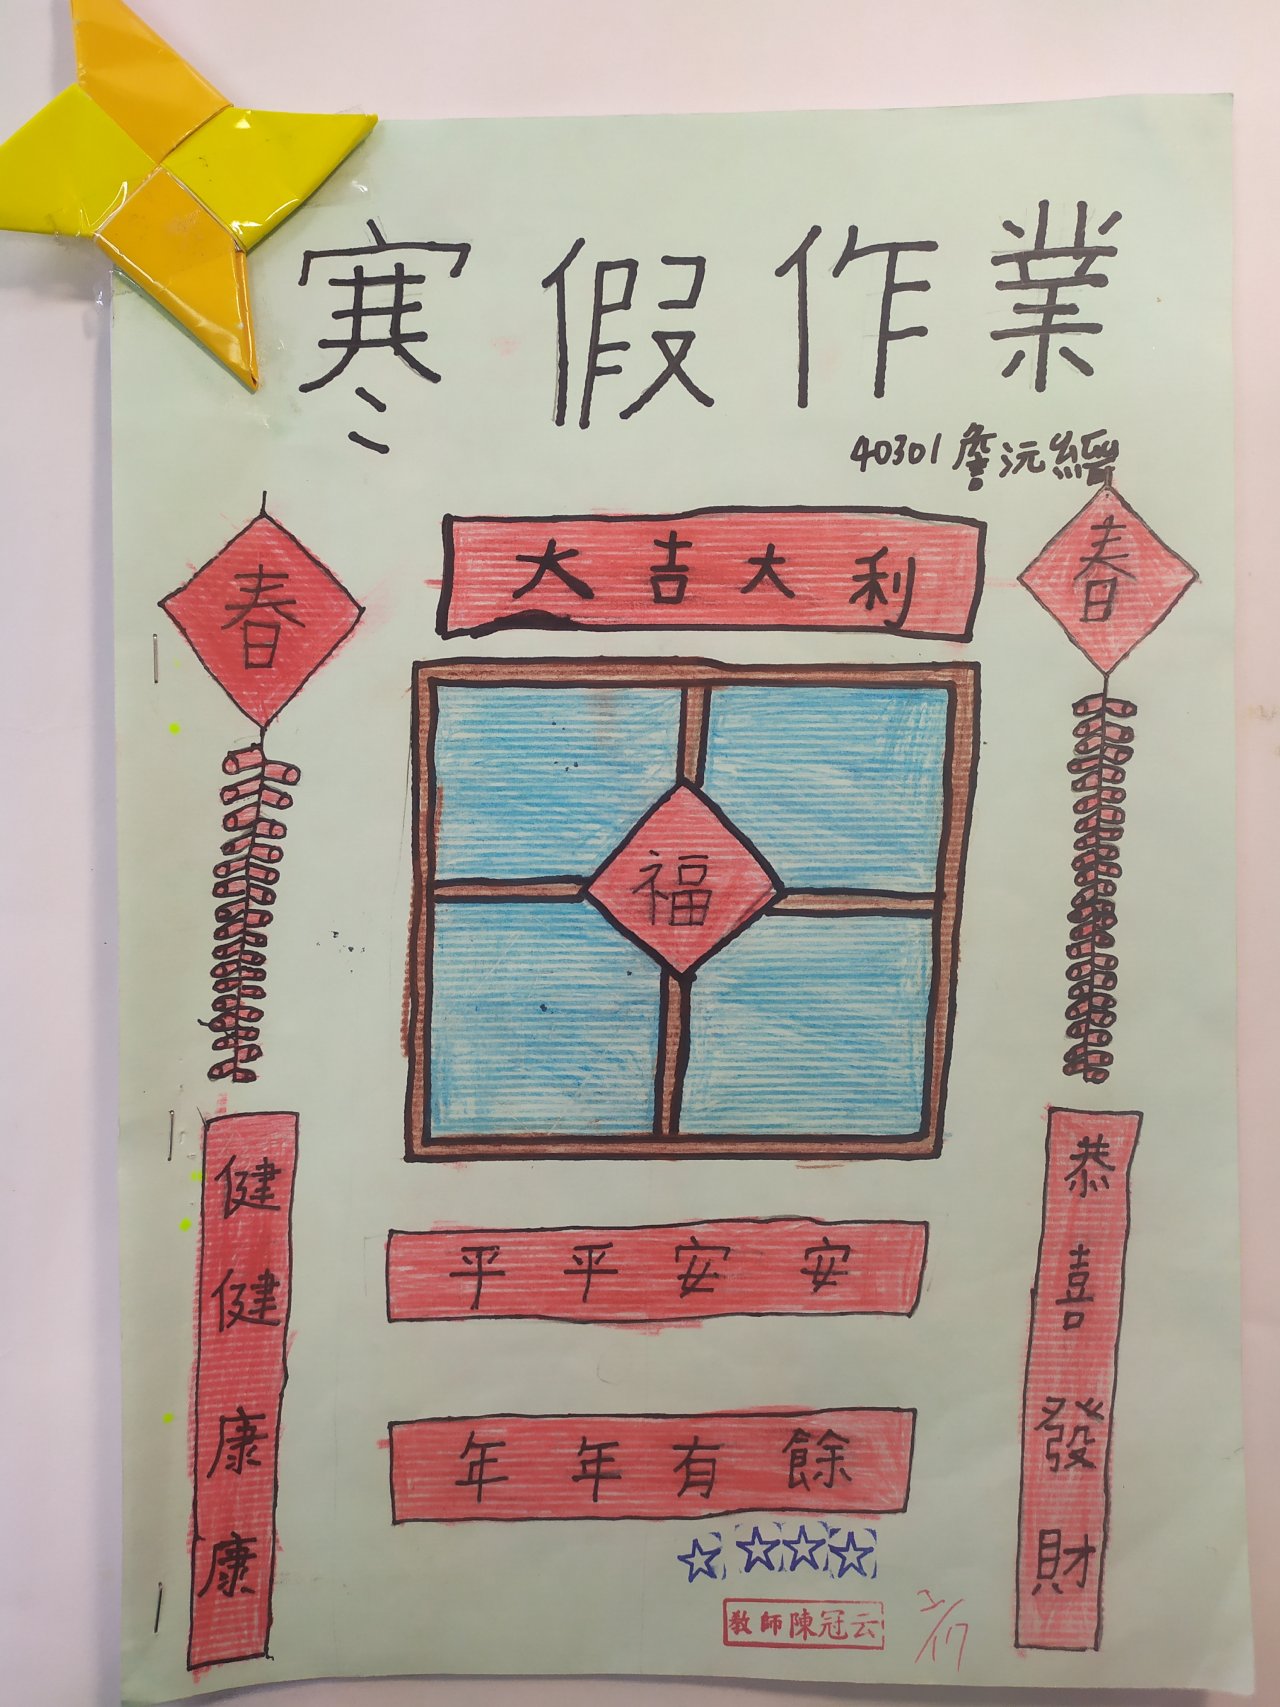 寒假作業
40301 詹沅縉
春
大吉大利
春
福
健健康康
恭喜發財
平平安安
年年有餘
教師陳冠云
2/17